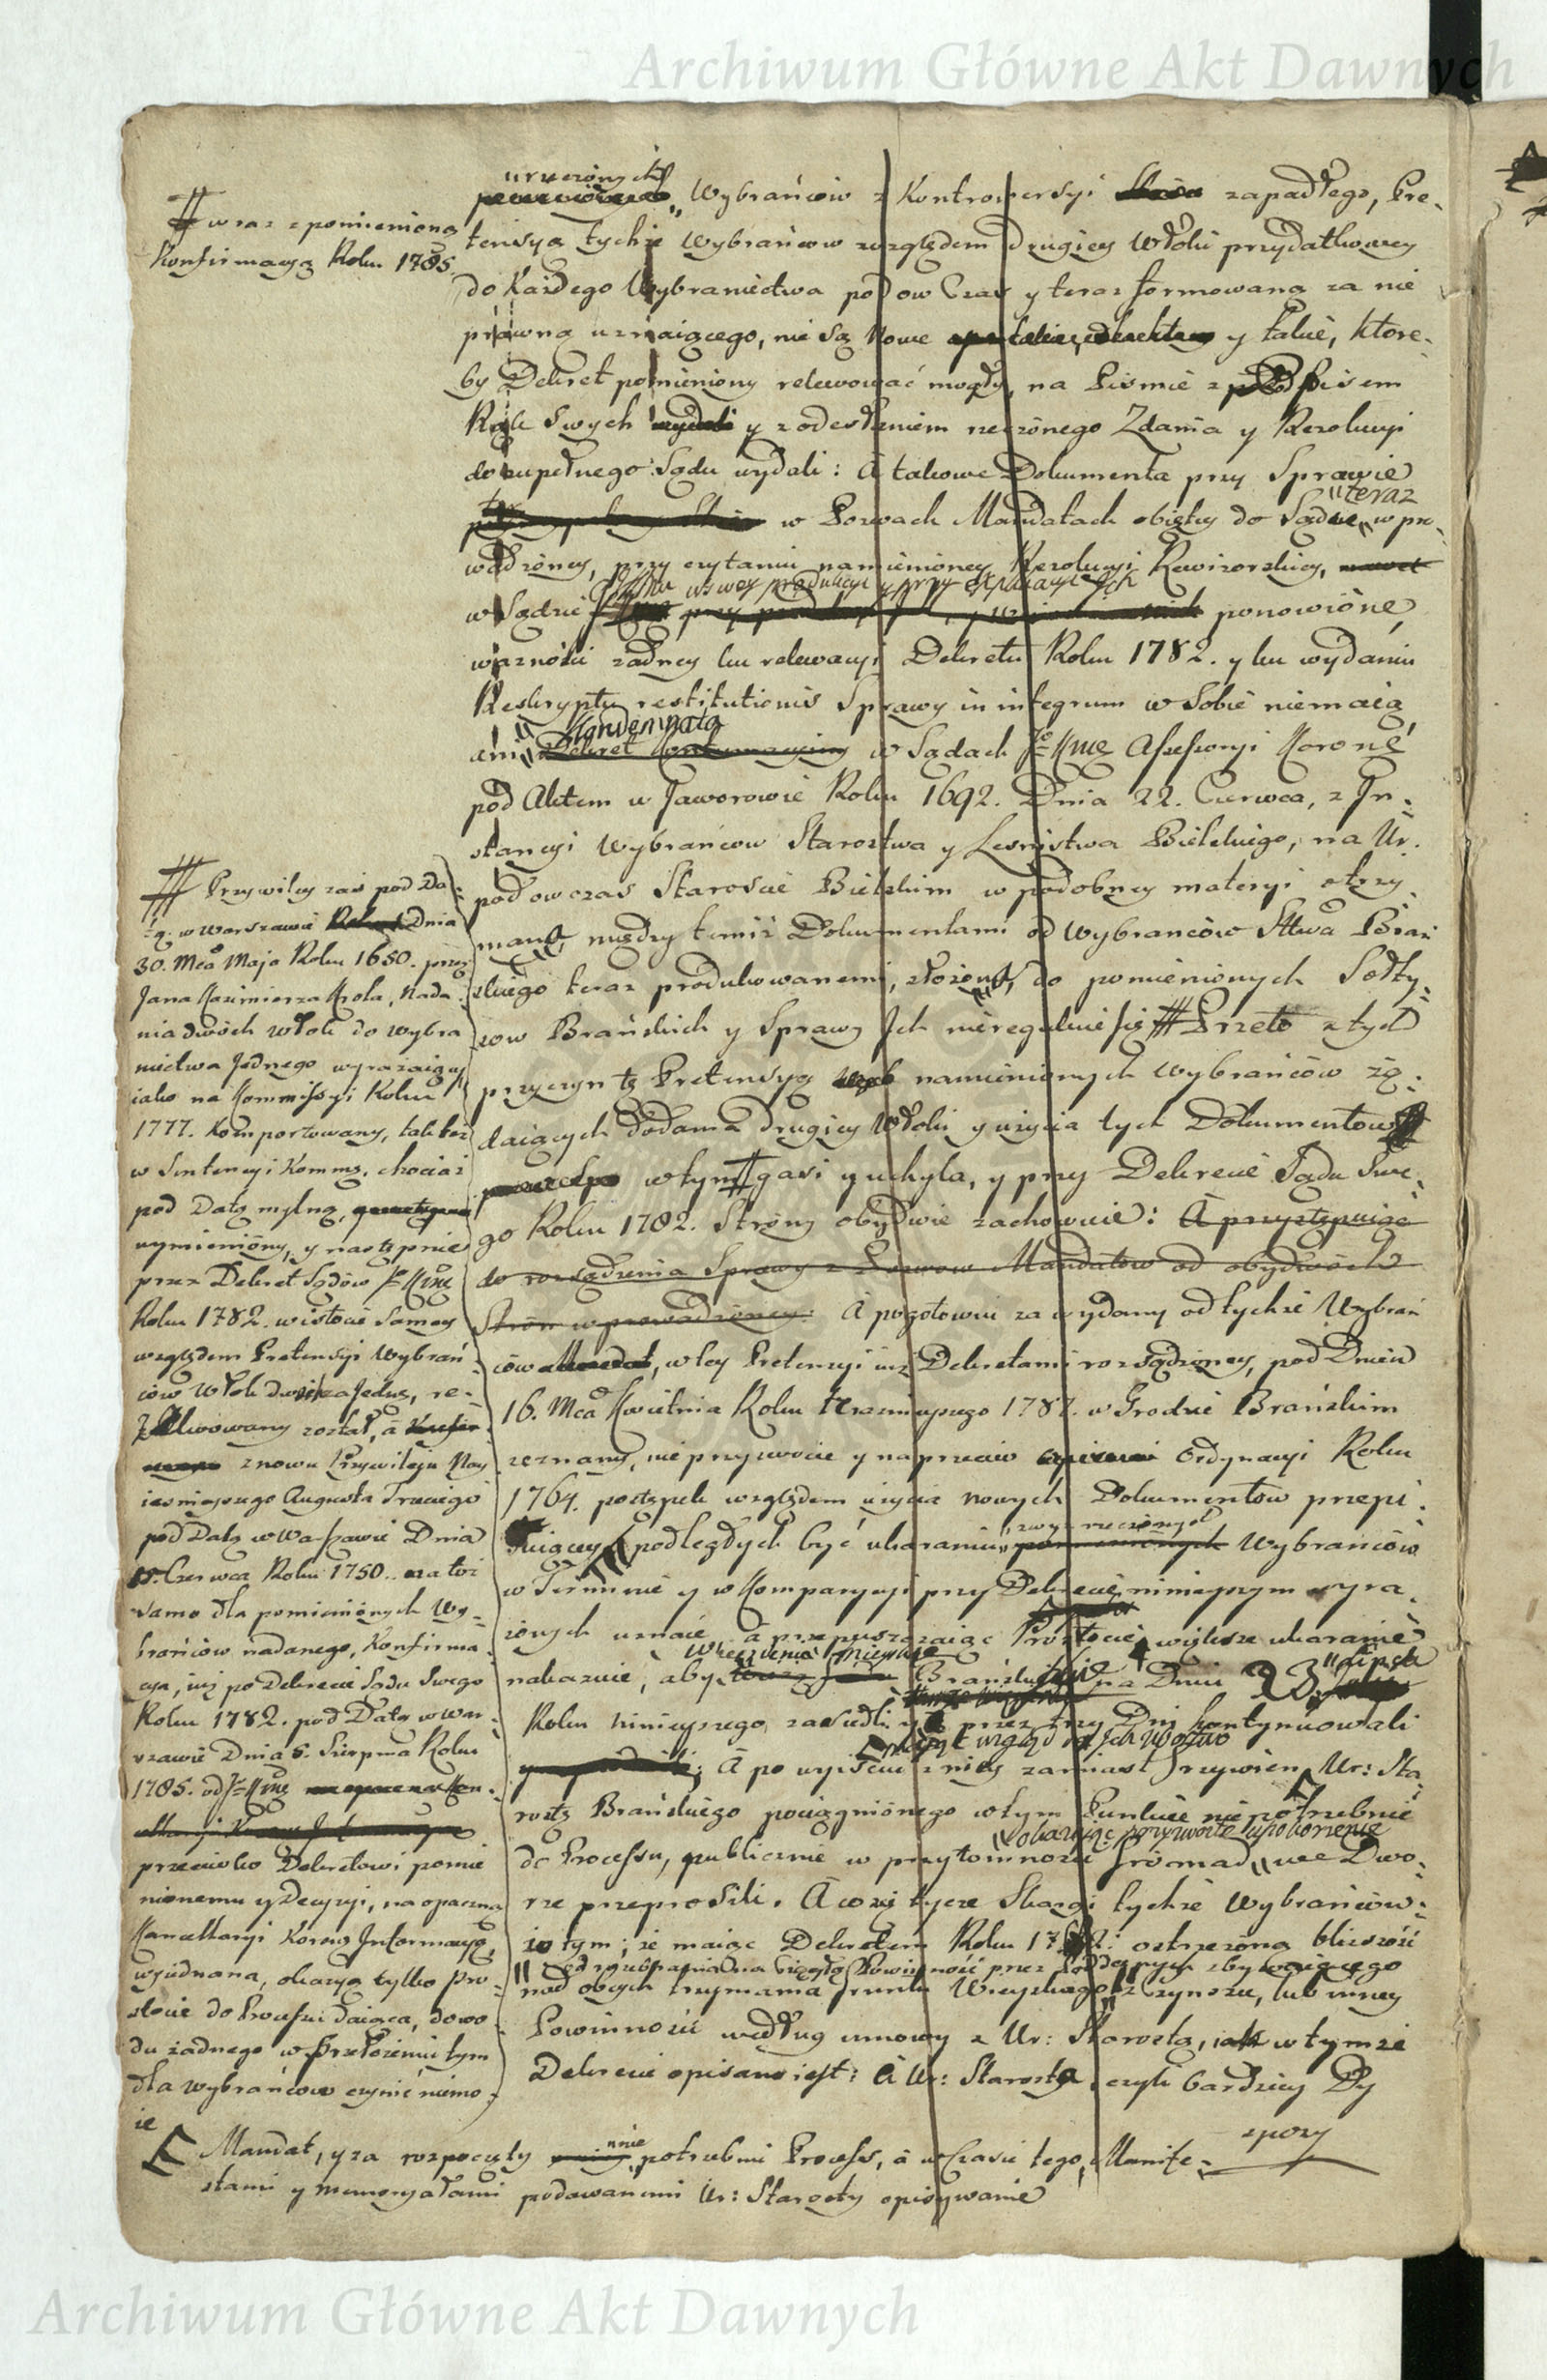 Archiwum Główne Akt Dawnych
"rzeczonych
Wybrańców z Kontrowersyi zapadłego, Pre-
tensyą tychże Wybrańcow względem drugiey Włoki przydatkowey
do Każdego Wybraniectwa pod ow Czas y teraz formowaną za nie
prawną uznaiącego, nie są Nowe y takie, ktore-
by Dekret pomieniony relewować mogły, na Pismie z podpisem
Rąk Swych y z odesłaniem rzeczonego Zdania y Rezolucyi
do zupełnego Sądu wydali: A takowe Dokumenta przy Sprawie
"teraz
w Pozwach Mandatach obiętey do Sądu „ wpro-
wadzoney, przy czytaniu namienioney Rezolucyi Rewizorskiey,
w swey produkcyi y przy explikacyi Ich
w Sądzie ponowione,
ważności żadney ku relewacyi Dekretu Roku 1782. y ku wydaniu
Reskryptu restitutionis Sprawy in integrum w Sobie niemaią
Kondemnata
ani w Sądach JKMci Assessoryi Koronney
pod Aktem w Jaworowie Roku 1692. Dnia 22. Czerwca, z In-
stancyi Wybrańcow Starostwa y Lesnistwa Bielskiego, na Ur.
pod owczas Staroscie Bielskim w podobney materyi otrzy-
mana, między temiż Dokumentami od Wybrańców Sttwa Brań-
skiego teraz produkowanemi, złożona, do pomienionych Sołty-
sow Brańskich y Sprawy Ich nieregulwie się # Przeto z tych
przyczyn tę Pretensyą namienionych Wybrańców żą-
daiących dodania drugiey Włoki y użycia tych Dokumentow
w tym # gasi y uchyla, y przy Dekrecie Sądu Swe-
go Roku 1782. Strony obydwie zachowuie: A przystępuiąc
do rozsądzenia Sprawy z Pozwow Mandatow od obydwóch
Stron wprowadzoney: A pogotowiu za wydany od tychże Wybrań
ców Mandat, w tey Pretensyi iuż Dekretami rozsądzoney, pod Dniem
16. Mca Kwietnia Roku teraznieyszego 1787. w Grodzie Brańskim
zeznany, nieprzyzwoicie y naprzeciw Ordynacyi Roku
1764. postępek względem użycia nowych Dokumentow przepi-
"zwyz rzeczonych
suiącey podległych być ukaraniu „ Wybrańców
w Terminie y w Kompanycyi przy Dekrecie ninieyszym wyra-
żonych uznaie, a przepuszczaiąc Prostocie, większe ukaranie
nakazuie, aby Brański na Dniu 23. "Lipca
Roku ninieyszego zasiedli y przez trzy Dni kontynuowali
A po wyisciu z niey zamiast Grzywien, Ur: Sta-
rostę Brańskiego pociągnionego w tym Punkcie niepotrzebnie
"okazuiąc przyzwoite upokorzenie
do Processu, publicznie w przytomnosci Gromad „ we Dwo-
rze przeprosili. A coz tycze Skargi tychże Wybrańców
io tym; że maiąc Dekretem Roku 1782. ostrzeżoną blizszość
nad obcych trzymania Gruntu Wieyskiego z Czynszu, lub inney
Powinnosci według umowy z Ur: Starostą, iak w tymże
Dekrecie opisano iest: A Ur: Starosta, czyli bardziey Dy
spozy
# wraz z pomienioną
Konfirmacyą Roku 1785.
# Przywiley zaś pod Da-
tą w Warszawie Dnia
30. Mca Maja Roku 1650. przez
Jana Kazimierza Krola, Nada-
nia dwóch włok do wybra
niectwa jednego wyrażaiący
iako na Kommissyi Roku
1777. Komportowany, tak też
w Sentencyi Kommis. chociaż
pod Datą mylną,
wymieniony, y następnie
przez Dekret Sądów JKMci
Roku 1782. w istocie Samey
względem Pretensyi Wybrań-
ców Włok dwóch za Jedną, re-
zolwowany został, a
znowu Przywileju Nay
iasnieyszego Augusta Trzeciego
pod Datą w Warszawie Dnia
15. Czerwca Roku 1750. na toż
samo dla pomienionych Wy-
brańców nadanego, Konfirma
cya, iuż po Dekrecie Sądu Swego
Roku 1782. pod Datą w War-
szawie Dnia 5. Sierpnia Roku
1785. od JKMci
przeciwko Dekretowi pomie
nionemu y Decyzyi, na opaczną
Kancellaryi Koron. Informacyą,
wyiednana, okazyą tylko pro-
stocie do Processu daiąca, dowo
du żadnego w Przełożeniu tym
dla wybrańcow czynić niemo-
że
Mandat, y za rozpoczęty potrzebni Process, a w Czasie tego, Manife-
stami y memoryałami podawanemi Ur: Starosty opisywanie
Archiwum Główne Akt Dawnych